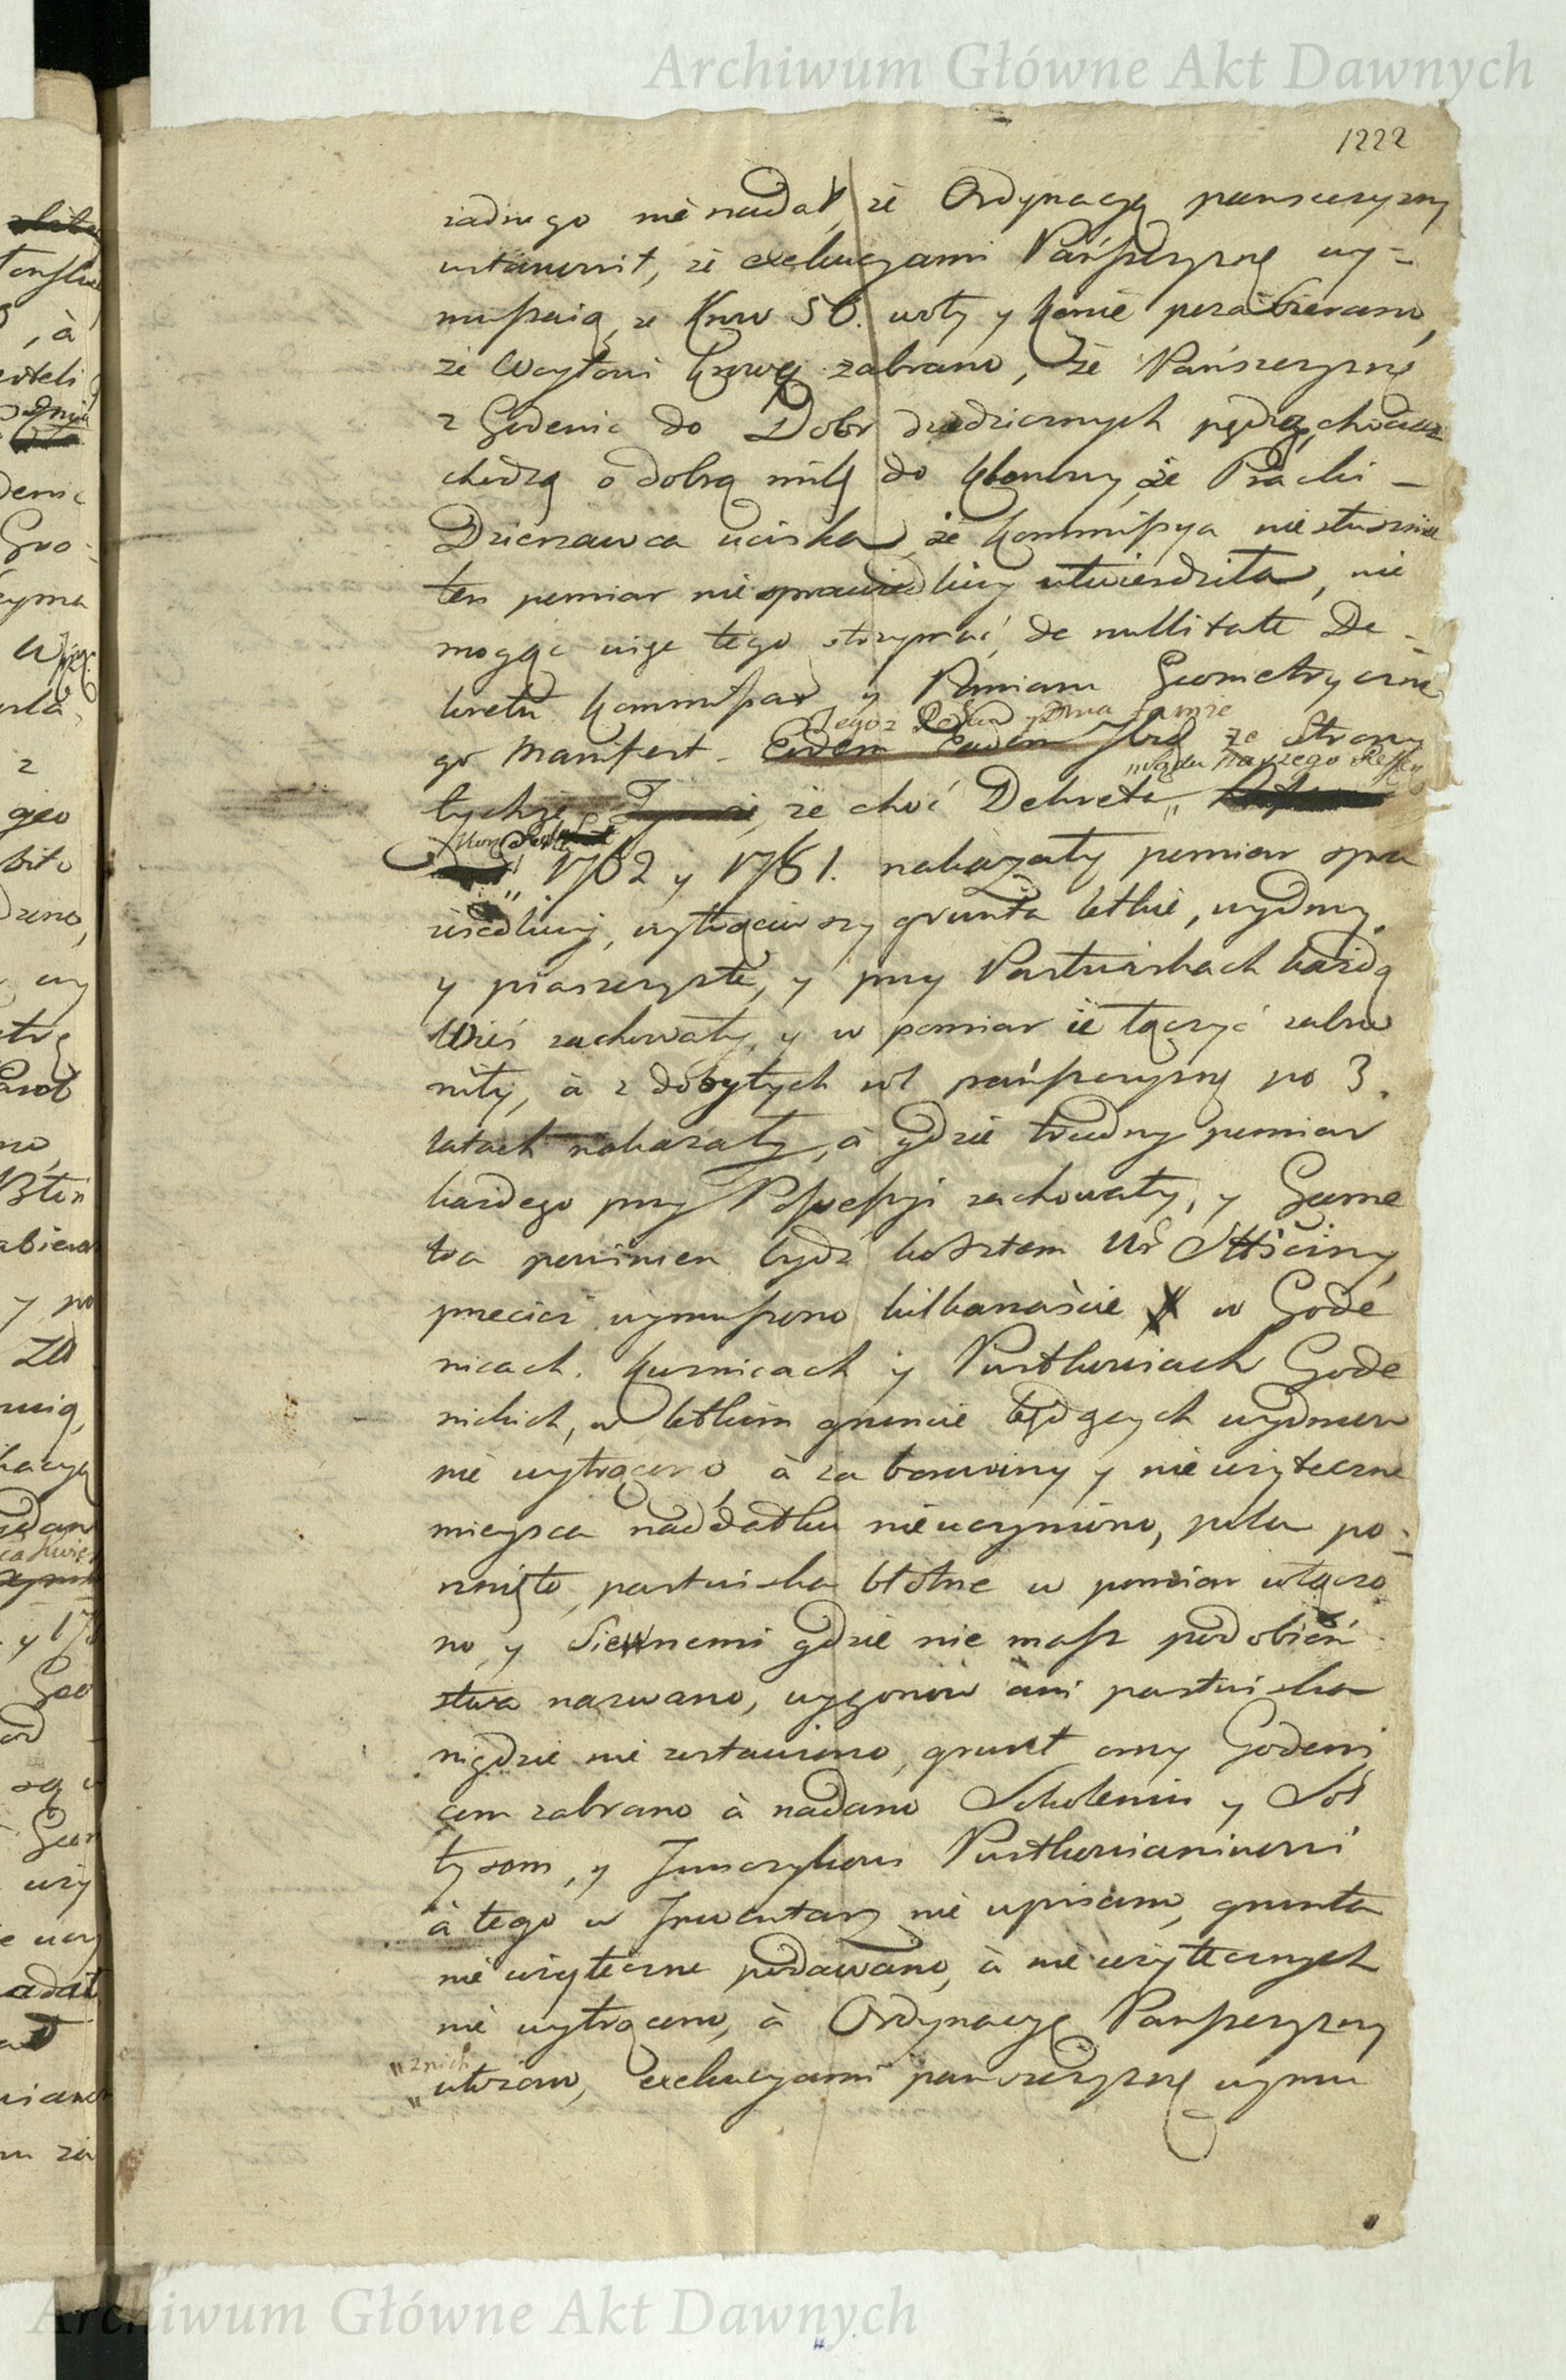 Archiwum Główne Akt Dawnych
1222
żadnego nie nadał, że Ordynacyą pansczyzny
ustanowił, że exekucyami Pańszczyznę wy-
muszaią, że Krów 50. woły y konie pozabierano,
że Woytowi krowę zabrano, że Pańszczyznę
z Godenic do Dobr dziedzicznych pędzą, chociasz
chodzą o dobrą milę do że
Dzierzawca uciska, że Kommissya niesłusznie
ten pomiar niesprawiedliwy utwierdziła, nie
mogąc więc tego utrzymać, de nullitate De-
kretu Kommissar y Pomiaru Geometryczne
go Manifest. Eodem ze Strony
tychże że choć Dekreta
1762 y 1761. nakazały pomiar spra
wiedliwy, wytrąciwszy grunta letkie, wydmy
y piaszczyste, y przy Pastwiskach każdą
Wieś zachowały, y w pomiar ie łączyć zabro
niły, à z dobytych wł pańszczyznę po 3.
latach nakazały, à gdzie trudny pomiar
każdego przy Possessyi zachowały, y Geome
tra powinien bydz kosztem Ur Stściny,
przecież wymuszono kilkanaście w Gode
nicach, Kuznicach y Pustkowiach Gode
nickich, w letkim gruncie będących wydmuw
nie wytrącono, à za borowiny y nieużyteczne
mieysca naddatku nieuczyniono, pola po-
rznięto, pastwiska błotne w pomiar włączo
no, y Siewnemi gdzie nie masz podobień
stwa nazwano, wygonów ani pastwiska
nigdzie nie zostawiono, grunt orny Godeni
com zabrano à nadano y Soł
tysom, y Pustkowianinowi
à tego w Inwentarz nie wpisano, grunta
nie użyteczne podawano, à nie użytecznych
nie wytrącono, à Ordynacyę Panszczyzny
„z nich
„utworzono, exekucyami panszczyznę wymu
Archiwum Główne Akt Dawnych